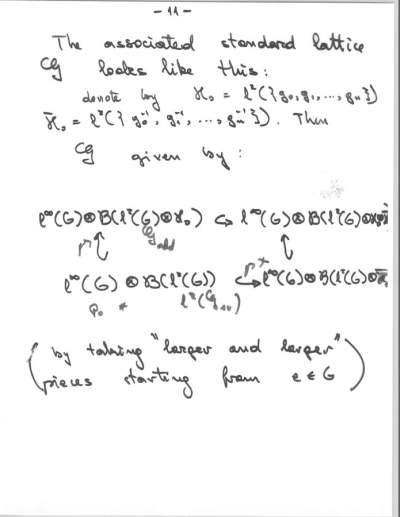 - 11 -
The associated standard lattice
𝒢 looks like this:
denote by ℋ₀ = ℓ²({g₀, g₁, ..., gₙ})
ℋ̄₀ = ℓ²({g₀⁻¹, g₁⁻¹, ..., gₙ⁻¹}). Then
𝒢 given by:
ℓ^∞(G)⊗B(ℓ²(G)⊗ℋ₀) ↪ ℓ^∞(G)⊗B(ℓ²(G)⊗
ℓ^∞(G) ⊗ B(ℓ²(G)) ↪ ℓ^∞(G)⊗B(ℓ²(G)⊗
(by taking "larger and larger"
pieces starting from e ∈ G)